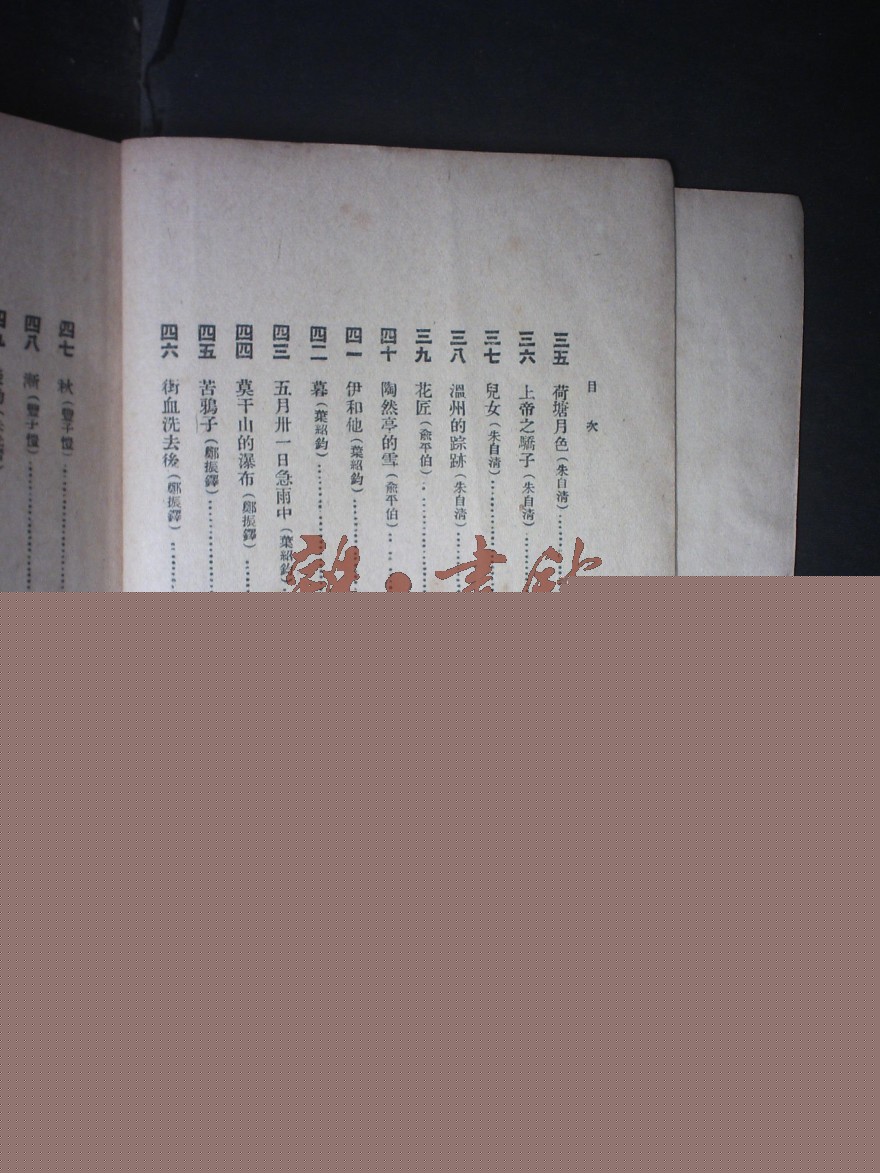 目次
三五 荷塘月色(朱自清)
三六 上帝之驕子(朱自清)
三七 兒女(朱自清)
三八 溫州的踪跡(朱自清)
三九 花匠(兪平伯)
四十 陶然亭的雪(兪平伯)
四一 伊和他(葉紹鈞)
四二 暮(葉紹鈞)
四三 五月卅一日急雨中(葉紹鈞)
四四 莫干山的瀑布(鄭振鐸)
四五 苦鴉子(鄭振鐸)
四六 街血洗去後(鄭振鐸)
四七 秋(豐子愷)
四八 漸(豐子愷)